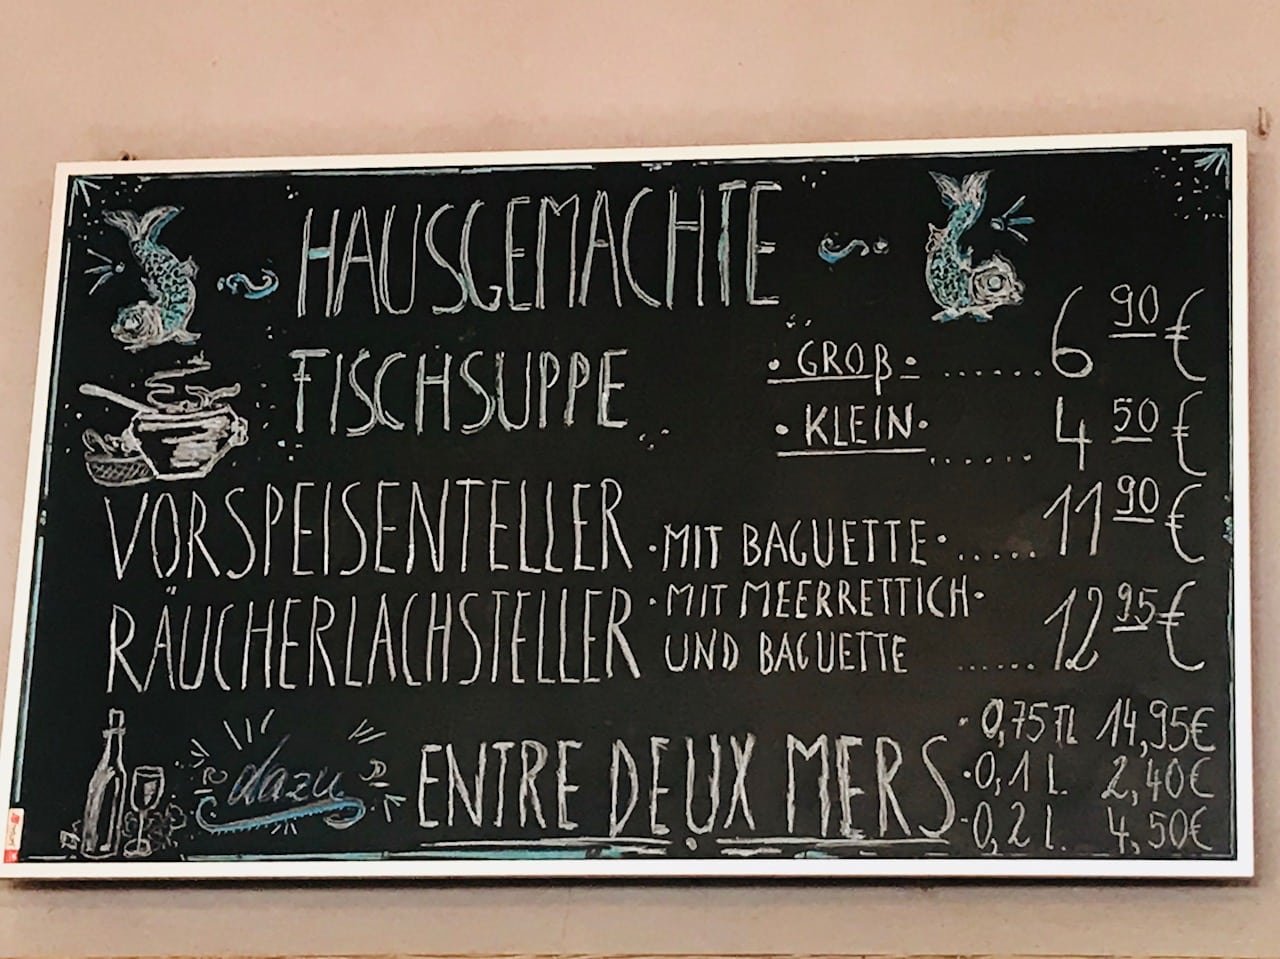 HAUSGEMACHTE
FISCHSUPPE
• GROß • ...... 6 90 €
• KLEIN • ...... 4 50 €
VORSPEISENTELLER • MIT BAGUETTE • ...... 11 90 €
RÄUCHERLACHSTELLER • MIT MEERRETTICH •
UND BAGUETTE ...... 12 95 €
dazu ENTRE DEUX MERS
• 0,75 FL 14,95€
• 0,1 L. 2,40€
• 0,2 L. 4,50€